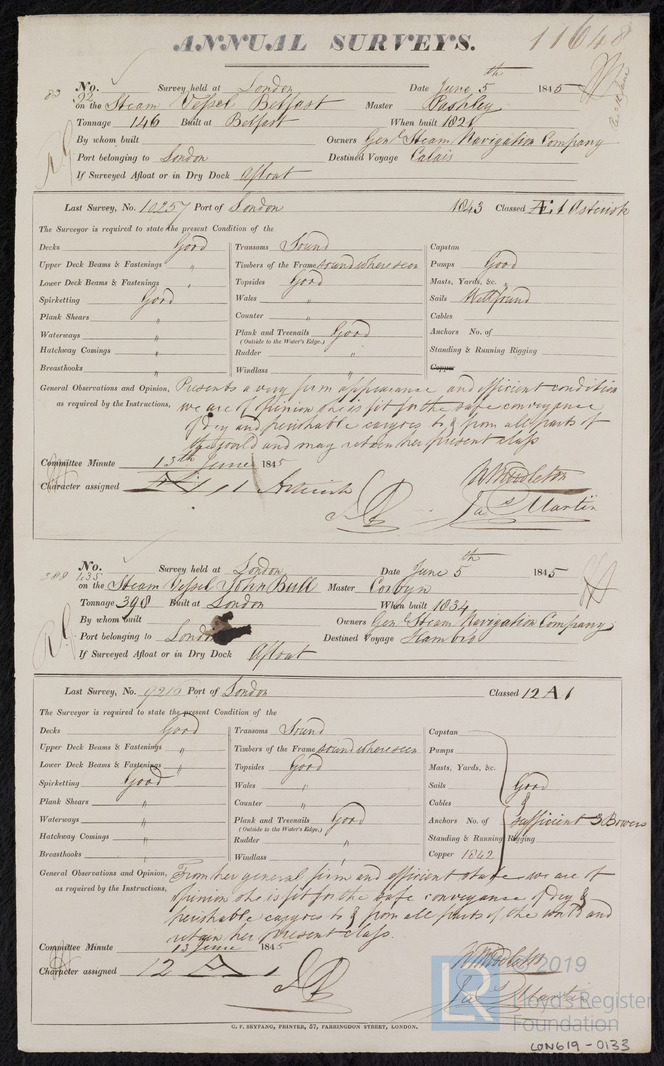 ANNUAL SURVEYS. 11648
83 No. 92 Survey held at London Date June 5th 1845
on the Steam Vessel Belfast Master Pashley
Tonnage 146 Built at Belfast When built 1821
By whom built Owners Genl Steam Navigation Company
Port belonging to London Destined Voyage Calais
If Surveyed Afloat or in Dry Dock Afloat
Last Survey, No. 10257 Port of London 1843 Classed Æ 1 Asterisk
The Surveyor is required to state the present Condition of the
Decks Good Transoms Sound Capstan
Upper Deck Beams & Fastenings " Timbers of the Frame sound where seen Pumps Good
Lower Deck Beams & Fastenings " Topsides Good Masts, Yards, &c. "
Spirketting Good Wales " Sails Well found
Plank Shears " Counter " Cables
Waterways " Plank and Treenails Good Anchors No. of
(Outside to the Water's Edge.)
Hatchway Comings " Rudder " Standing & Running Rigging
Breasthooks " Windlass " Copper
General Observations and Opinion, Presents a very firm appearance and efficient condition
as required by the Instructions, we are of opinion she is fit for the safe conveyance
of dry and perishable cargoes to & from all parts of
the world and may retain her present class
Committee Minute 13th June 1845
W Middleton
Character assigned Æ 1 Asterisk
Jas Martin
389 No. 135 Survey held at London Date June 5th 1845
on the Steam Vessel John Bull Master Corbyn
Tonnage 398 Built at London When built 1834
By whom built Owners Genl Steam Navigation Company
Port belonging to London Destined Voyage Hambro
If Surveyed Afloat or in Dry Dock Afloat
Last Survey, No. 9216 Port of London Classed 12 A 1
The Surveyor is required to state the present Condition of the
Decks Good Transoms Sound Capstan
Upper Deck Beams & Fastenings " Timbers of the Frame sound where seen Pumps
Lower Deck Beams & Fastenings " Topsides Good Masts, Yards, &c.
Spirketting Good Wales " Sails Good
Plank Shears " Counter " Cables &
Waterways " Plank and Treenails Good Anchors No. of sufficient 3 Bowers
(Outside to the Water's Edge.)
Hatchway Comings " Rudder " Standing & Running Rigging
Breasthooks " Windlass " Copper 1842
General Observations and Opinion, From her general firm and efficient state we are of
as required by the Instructions, opinion she is fit for the safe conveyance of dry &
perishable cargoes to & from all parts of the world and
retain her present class.
Committee Minute 13 June 1845
W Middleton
Character assigned 12 A 1
Jas Martin
© 2019
LR Lloyd's Register
Foundation
C. F. SEYFANG, PRINTER, 57, FARRINGDON STREET, LONDON.
LON619-0133